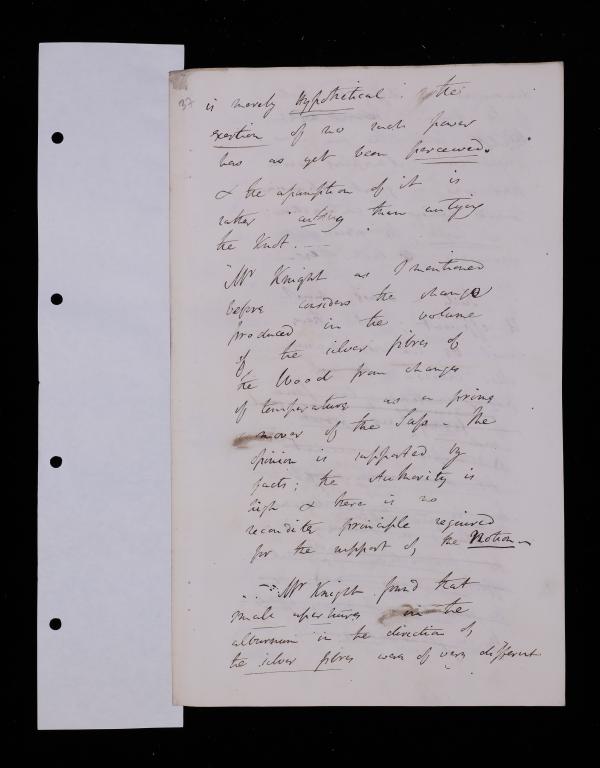 37
is merely Hypothetical. the
exertion of no such power
has as yet been perceived.
& the assumption of it is
rather cutting than untying
the Knot. —
"Mr Knight as I mentioned
before considers the change
produced in the volume
of the silver fibres of
the Wood from changes
of temperature as a prime
mover of the Sap – The
opinion is supported by
facts; the Authority is
high & there is no
recondite principle required
for the support of the Notion –
Mr Knight found that
small apertures in the
alburnum in the direction of
the silver fibres were of very different